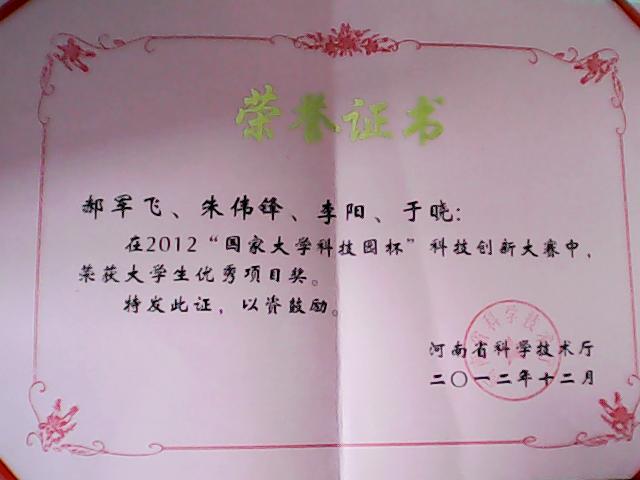 荣誉证书
郝军飞、朱伟锋、李阳、于晓:
在2012“国家大学科技园杯”科技创新大赛中,
荣获大学生优秀项目奖。
特发此证，以资鼓励。
河南省科学技术厅
二〇一二年十二月